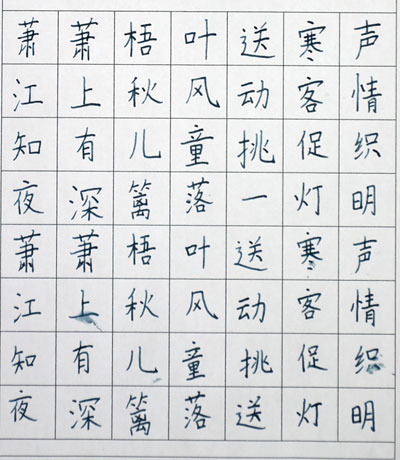 萧萧梧叶送寒声
江上秋风动客情
知有儿童挑促织
夜深篱落一灯明
萧萧梧叶送寒声
江上秋风动客情
知有儿童挑促织
夜深篱落送灯明